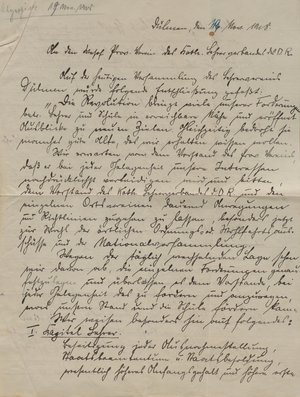 Dülmen, den 19. Nov. 1918.
An den Westf. Prov. Verein des Kath. Lehrerverbandes d. D. R.
Auf der heutigen Versammlung des Lehrervereins
Dülmen wurde folgende Entschließung gefaßt:
"Die Revolution bringt viele unserer Forderungen
betr. Lehrer und Schule in erreichbare Nähe und eröffnet
Ausblicke zu weiten Zielen. Gleichzeitig bedroht sie
manches gute Alte, das wir erhalten wissen wollen.
Wir erwarten von dem Vorstand des Prov. Vereins,
daß er bei jeder Gelegenheit unsere Interessen
nachdrücklichst verteidigen wird und bitten
den Vorstand des Kath. Lehrerverbandes d. D. R. und den
einzelnen Ortsvereinen dauernd Anregungen
und Richtlinien zugehen zu lassen, besonders jetzt
zur Wahl der örtlichen Ordnungs- und Wohlfahrtsaus-
schüsse und der Nationalversammlung.
Wegen der täglich wechselnden Lage sehen
wir davon ab, die einzelnen Forderungen genau
festzulegen und überlassen es dem Vorstande, bei
jeder Gelegenheit das zu fordern und anzuregen,
was unsern Stand und die Schule fördern kann.
Wir weisen besonders hin auf folgendes:
I. Kapitel Lehrer.
Beseitigung jeder Ausnahmestellung,
Staatsbeamtentum u. Staatsbesoldung,
wesentlich höheres Anfangsgehalt und höhere erste